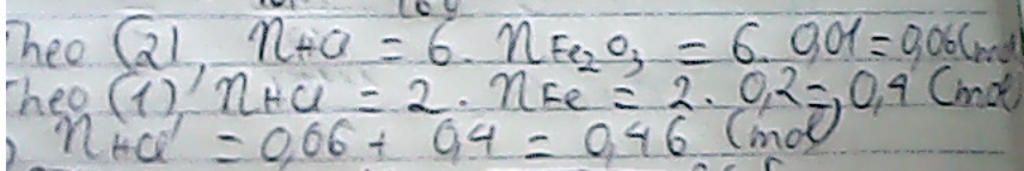 Theo (2), nHCl = 6. nFe₂O₃ = 6. 0,01 = 0,06 (mol)
Theo (1), nHCl = 2. nFe = 2. 0,2 = 0,4 (mol)
nHCl = 0,06 + 0,4 = 0,46 (mol)